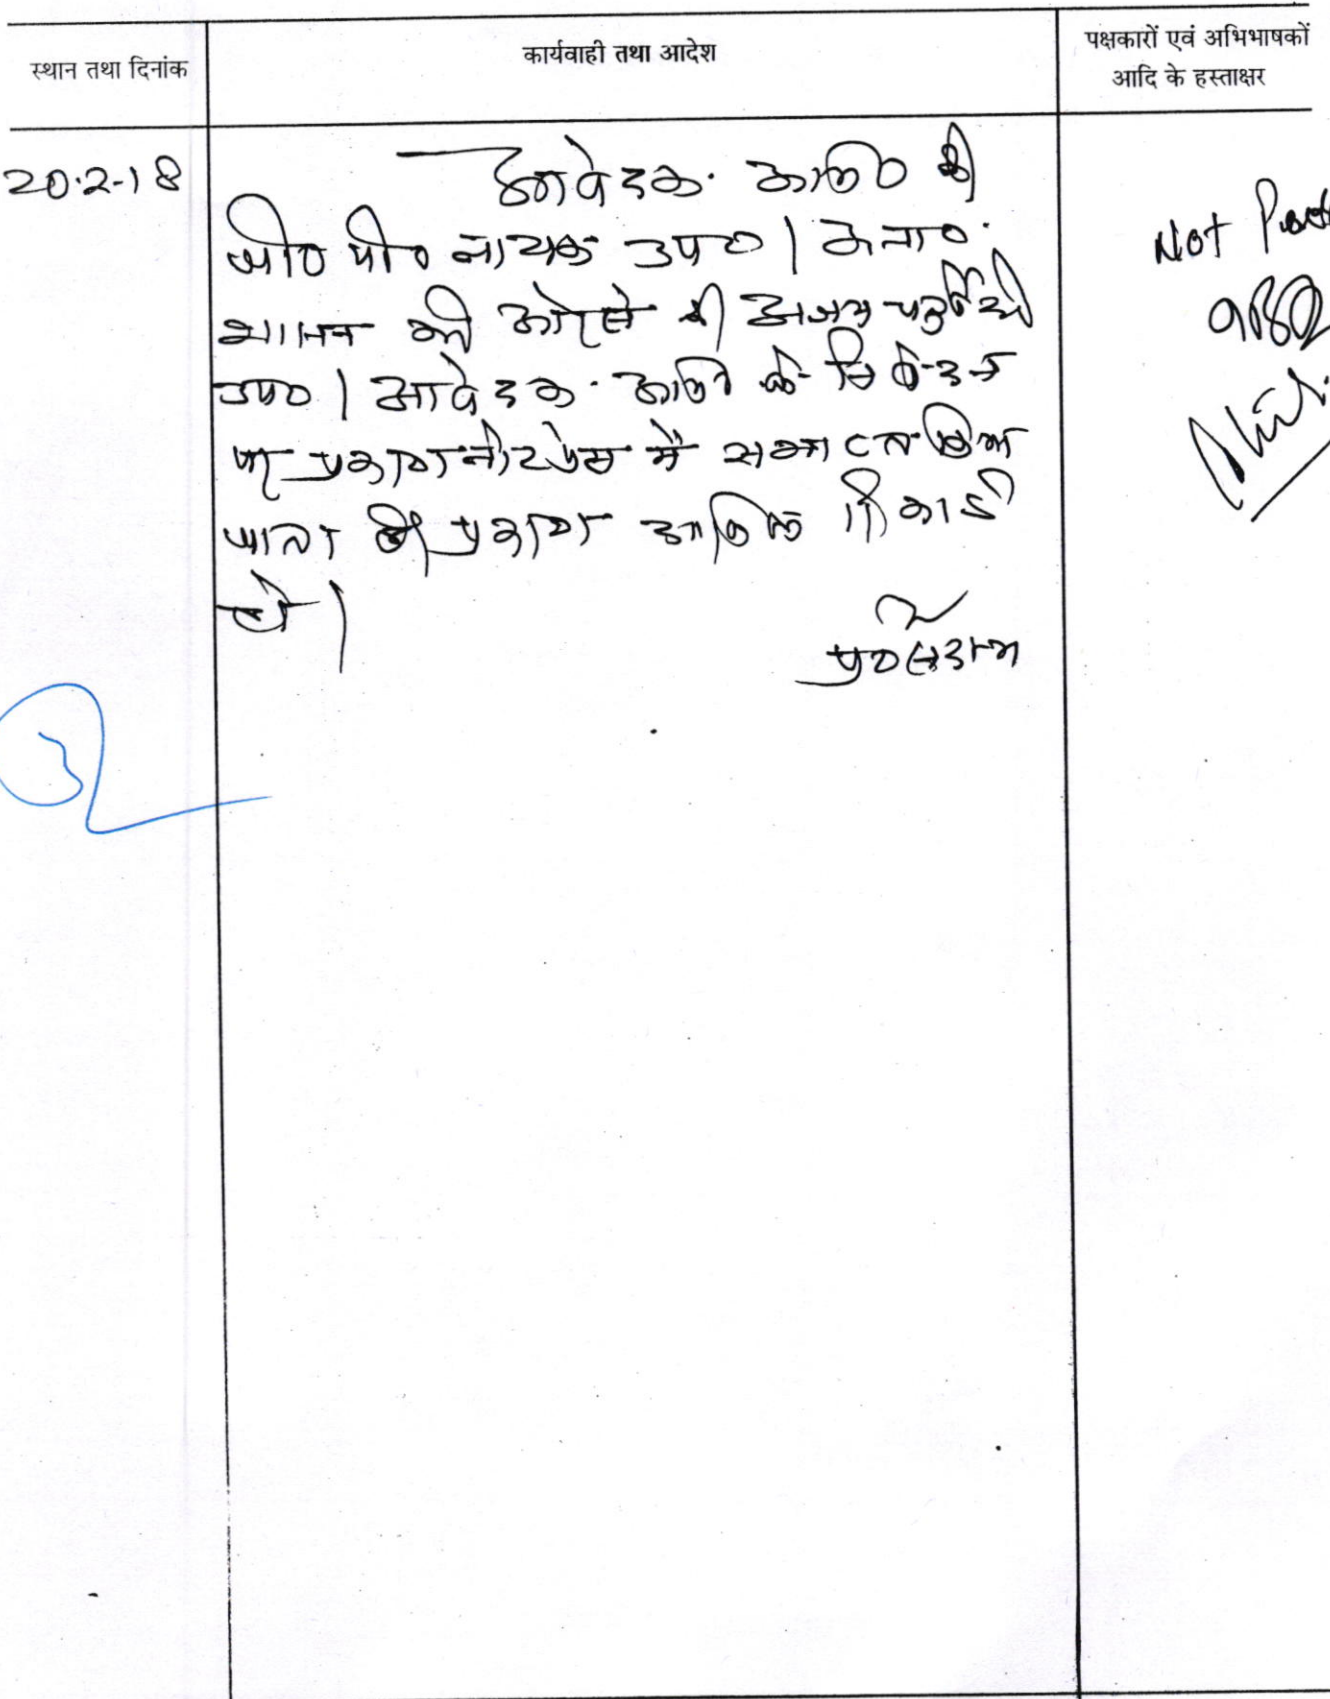 स्थान तथा दिनांक
कार्यवाही तथा आदेश
पक्षकारों एवं अभिभाषकों
आदि के हस्ताक्षर
20.2-18
आवेदक अभि० श्री
जी० पी० नायक उप० । अना०
शासन की ओर से श्री अजय चतुर्वेदी
उप० । आवेदक अभि० के निवेदन
पर प्रकरण नोट प्रेस में समाप्त किया
जाता है। प्रकरण दाखिल रिकार्ड
हो ।
Not